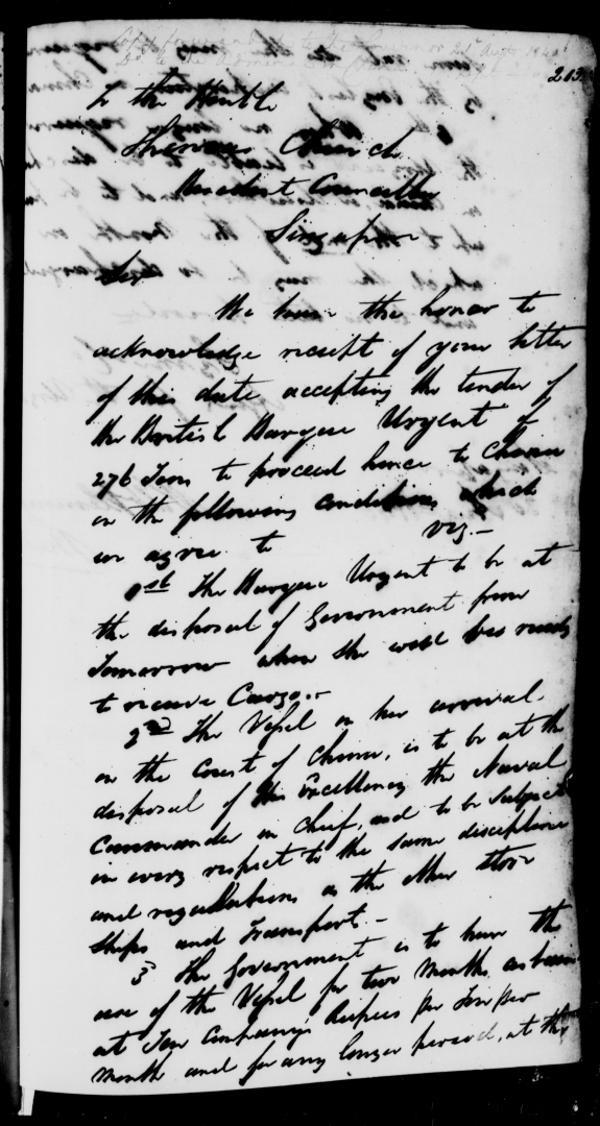 213
To the Honble
Thomas Church
Resident Councillor
Singapore
Sir
We have the honor to
acknowledge receipt of your letter
of this date accepting the tender of
the British Barque Urgent of
276 Tons to proceed hence to China
on the following conditions which
we agree to viz.–
1st The Barque Urgent to be at
the disposal of Government from
Tomorrow when she will be ready
to receive Cargo.–
2nd The Vessel on her arrival
on the Coast of China, is to be at the
disposal of His Excellency the Naval
Commander in Chief, and to be Subject
in every respect to the same discipline
and regulations as the other Store
Ships and Transports.–
3 The Government is to have the
use of the Vessel for two Months
at Ten Company's Rupees per Ton per
Month and for any longer period, at the